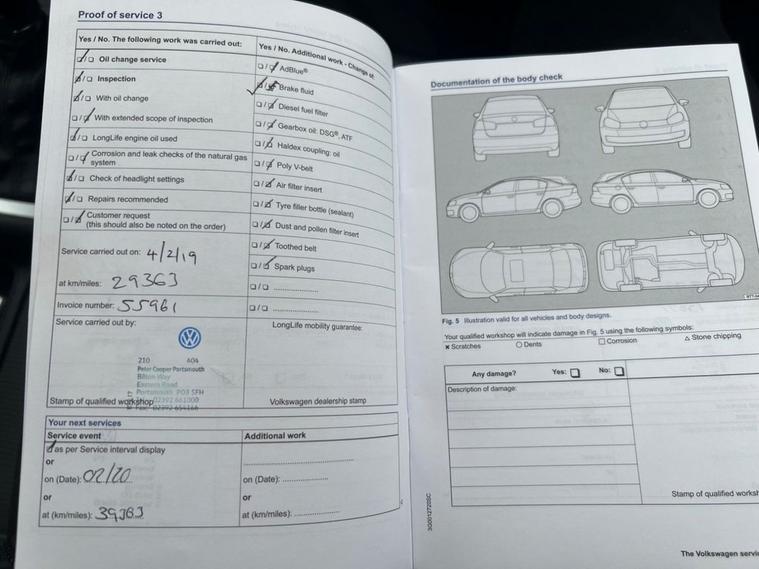 Proof of service 3
Yes / No. The following work was carried out:
☑/☐ Oil change service
☑/☐ Inspection
☑/☐ With oil change
☐/☑ With extended scope of inspection
☑/☐ LongLife engine oil used
☐/☑ Corrosion and leak checks of the natural gas
system
☑/☐ Check of headlight settings
☑/☐ Repairs recommended
☐/☑ Customer request
(this should also be noted on the order)
Service carried out on: 4/2/19
at km/miles: 29363
Invoice number: 55961
Service carried out by:
LongLife mobility guarantee:
210 404
Peter Cooper Portsmouth
Bilton Way
Eastern Road
Portsmouth PO3 5FH
02392 661000
Fax: 02392 654166
Stamp of qualified workshop
Volkswagen dealership stamp
Yes / No. Additional work - Change of:
☐/☑ AdBlue®
Brake fluid
☐/☑ Diesel fuel filter
☐/☑ Gearbox oil: DSG®, ATF
☐/☑ Haldex coupling: oil
☐/☑ Poly V-belt
☐/☑ Air filter insert
☐/☑ Tyre filler bottle (sealant)
☐/☑ Dust and pollen filter insert
☐/☑ Toothed belt
☐/☑ Spark plugs
☐/☐ ....................
☐/☐ ....................
Your next services
Service event
☑ as per Service interval display
or
on (Date): 02/20
or
at (km/miles): 39363
Additional work
....................
on (Date): ....................
or
at (km/miles): ....................
Documentation of the body check
Fig. 5 Illustration valid for all vehicles and body designs.
Your qualified workshop will indicate damage in Fig. 5 using the following symbols:
× Scratches ○ Dents □ Corrosion △ Stone chipping
Any damage? Yes: ☐ No: ☐
Description of damage:
Stamp of qualified worksh
3G0012720SC
The Volkswagen servic